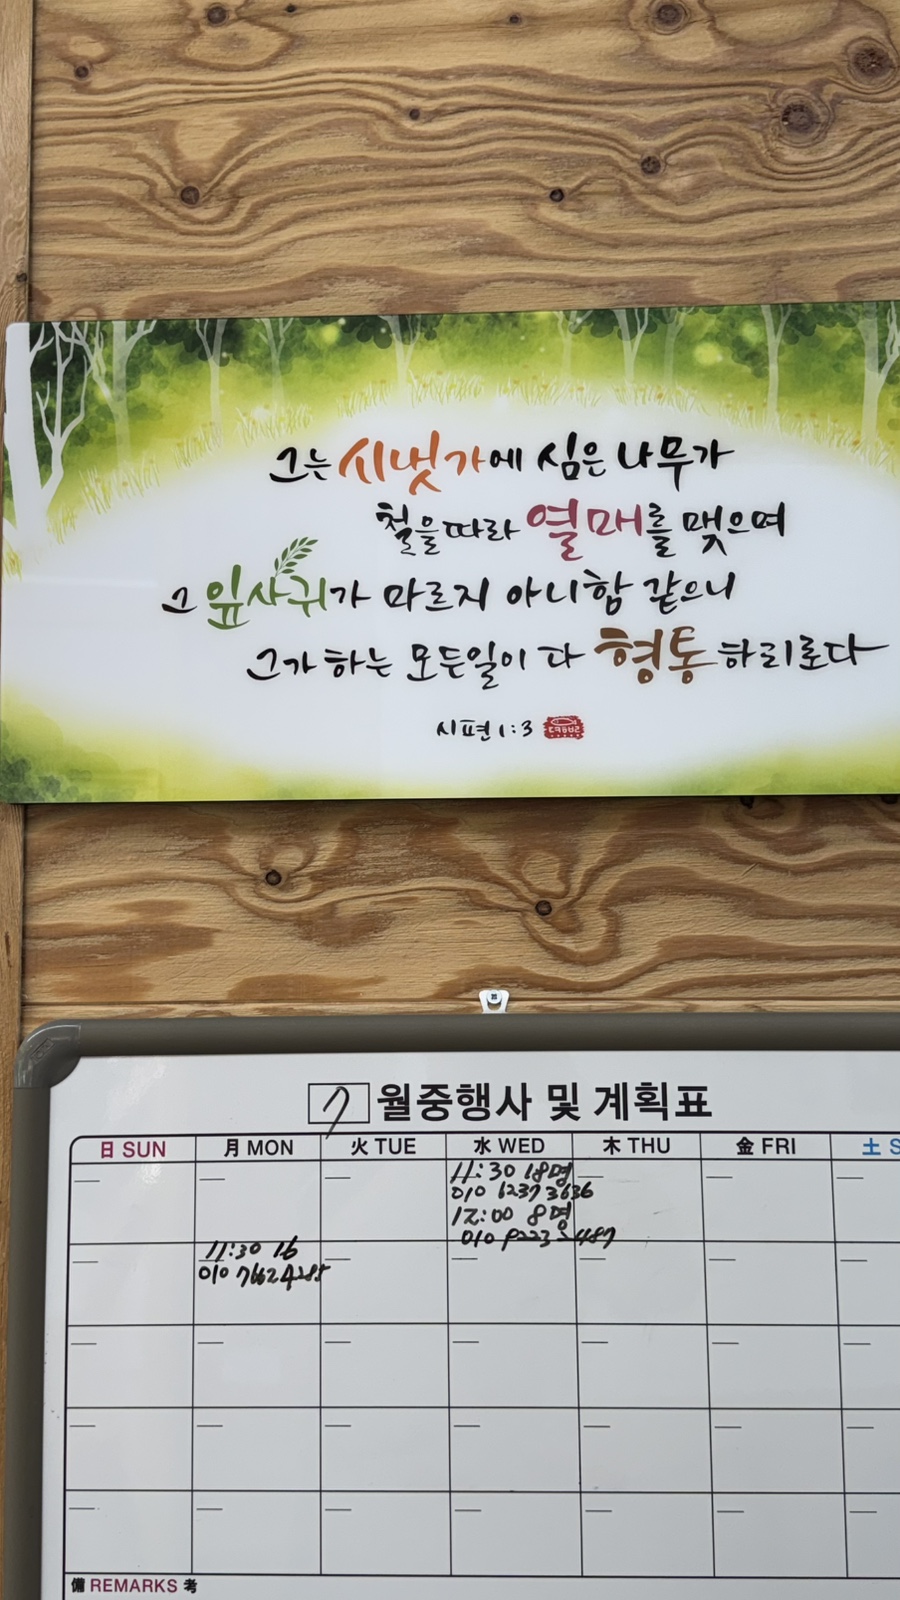 그는 시냇가에 심은 나무가
철을 따라 열매를 맺으며
그 잎사귀가 마르지 아니함 같으니
그가 하는 모든일이 다 형통하리로다
시편 1:3
7 월중행사 및 계획표
日 SUN 月 MON 火 TUE 水 WED 木 THU 金 FRI 土 S
11:30 18명
010 6237 3636
12:00 8명
010
11:30 16
010 7662 4285
備 REMARKS 考